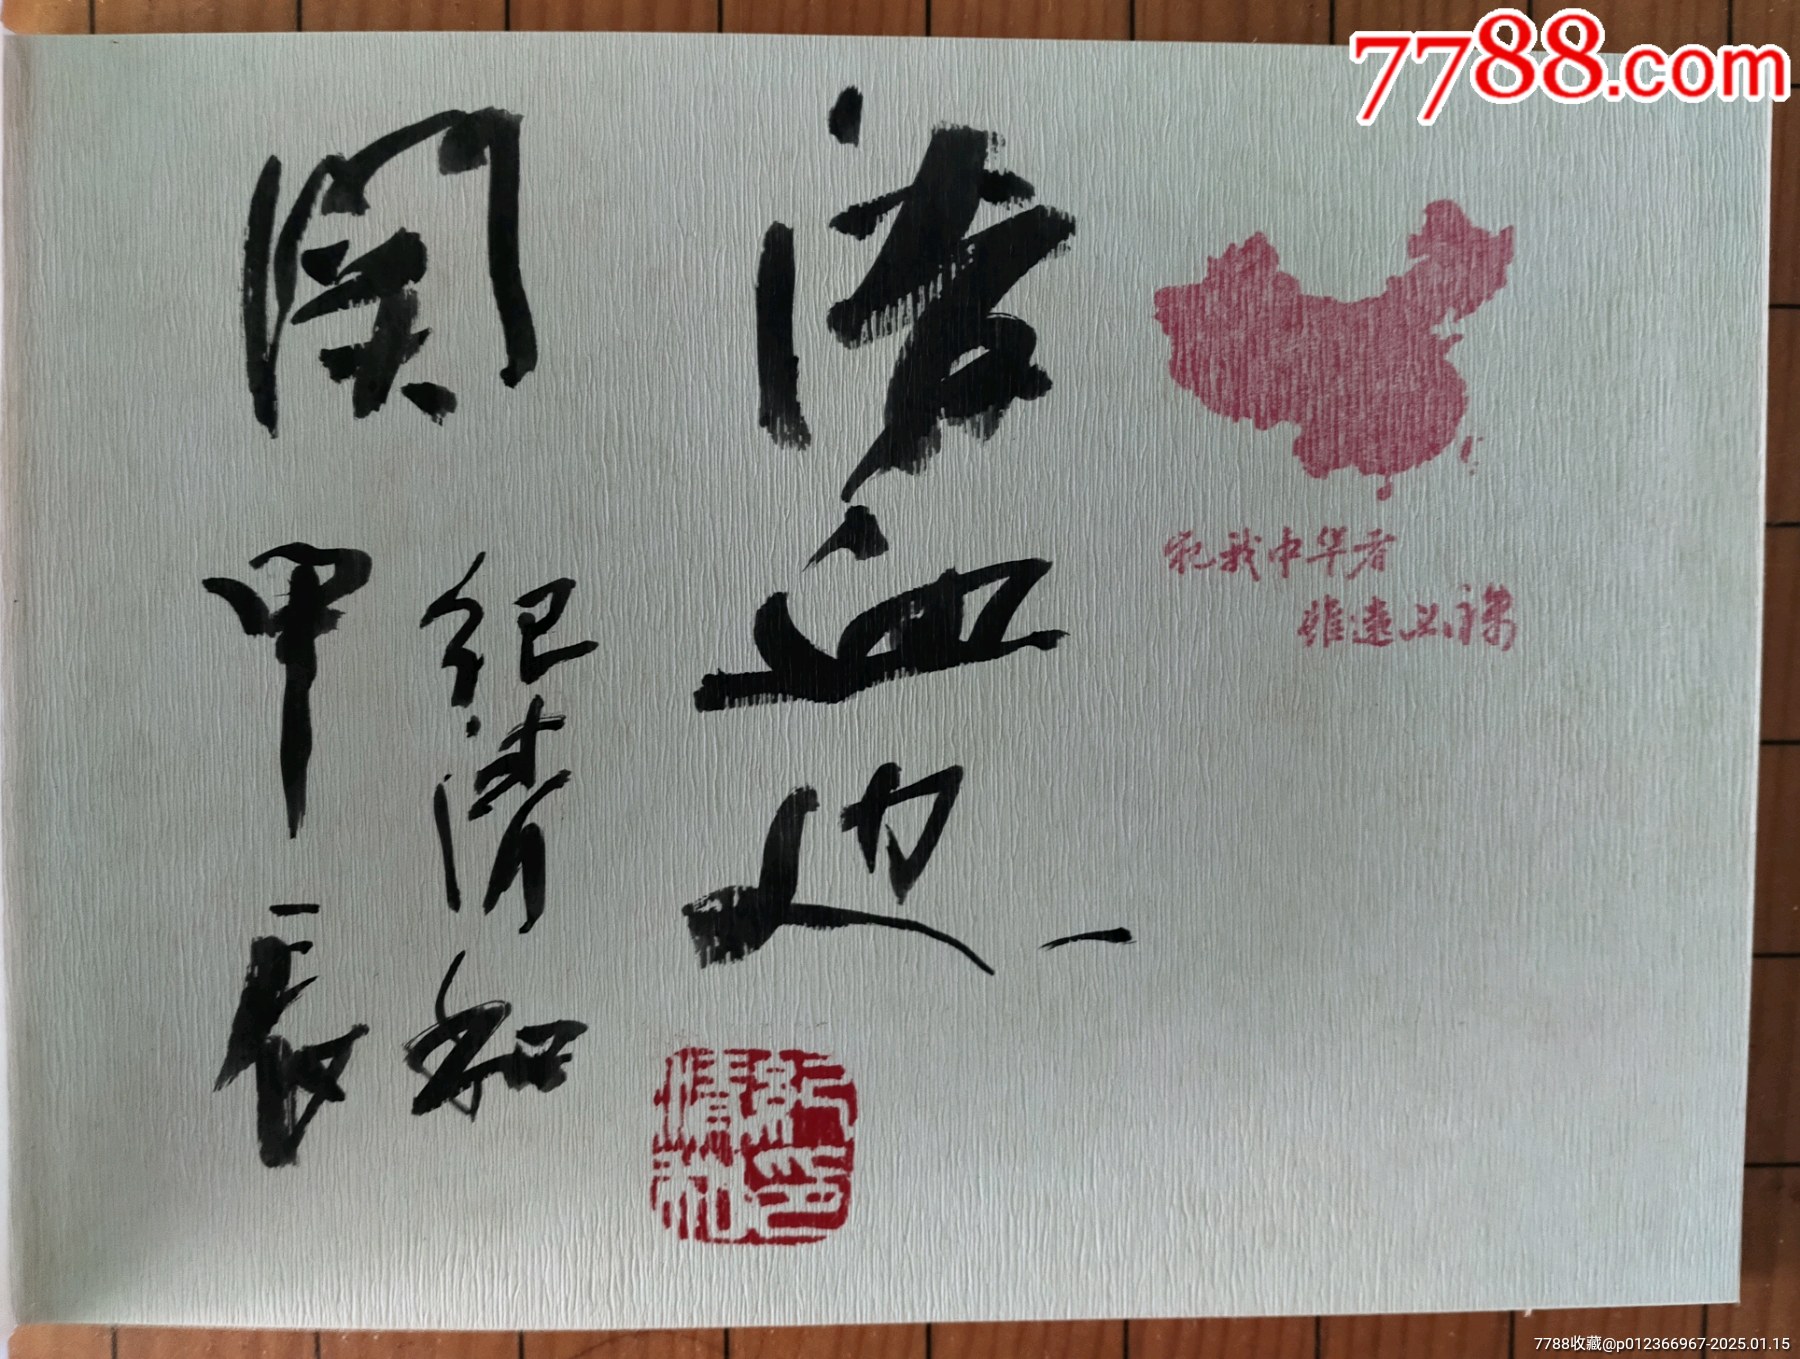 7788.com
犯我中华者
雖遠必誅
浴血边
关
纪清和
甲辰
7788收藏@p012366967-2025.01.15